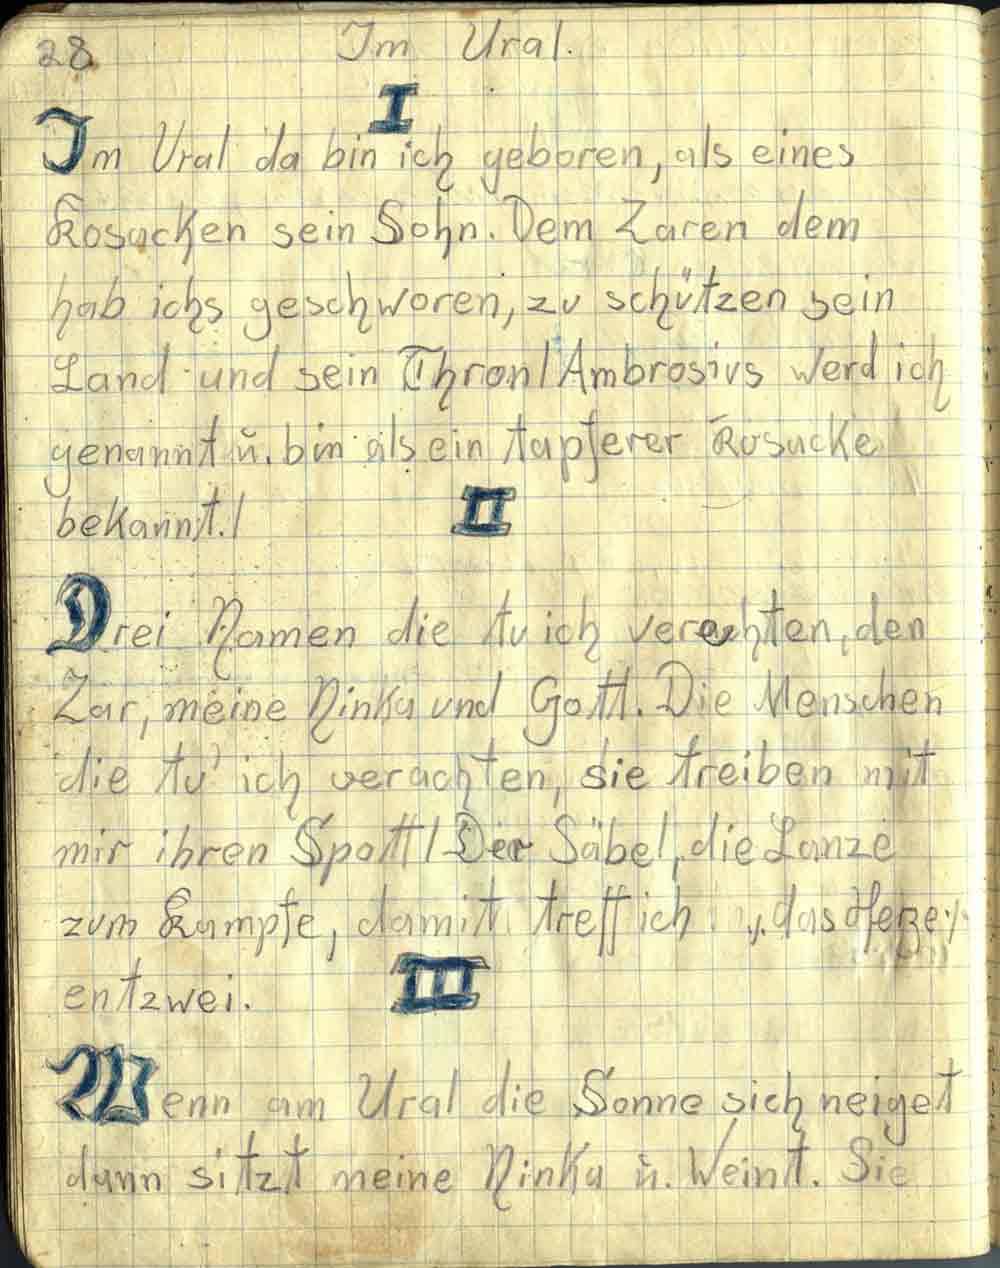 28. Im Ural.
I
Im Ural da bin ich geboren, als eines
Kosacken sein Sohn. Dem Zaren dem
hab ichs geschworen, zu schützen sein
Land und sein Thron / Ambrosius werd ich
genannt ŭ. bin als ein tapferer Kosacke
bekannt. /
II
Drei Namen die tu ich verachten, den
Zar, meine Ninka und Gott. Die Menschen
die tu' ich verachten, sie treiben mit
mir ihren Spott / Der Säbel, die Lanze
zum Kampfe, damit treff ich das Herze
entzwei.
III
Wenn am Ural die Sonne sich neiget
dann sitzt meine Ninka ŭ. Weint. Sie